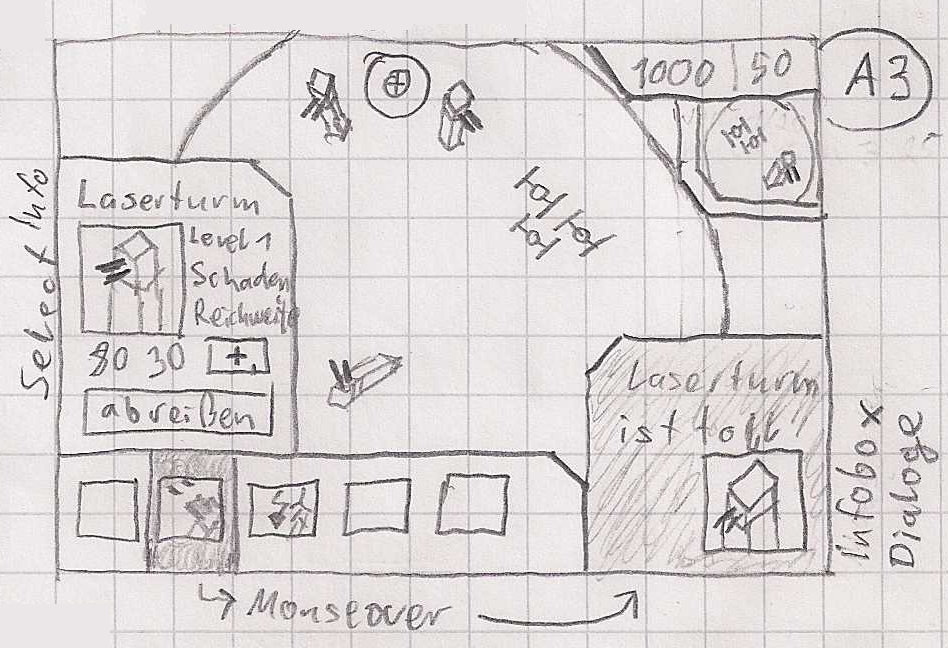 1000 | 50
A3
Select Info
Laserturm
Level 1
Schaden
Reichweite
80 30 +
abreißen
Laserturm
ist toll
Infobox
Dialoge
Mouseover